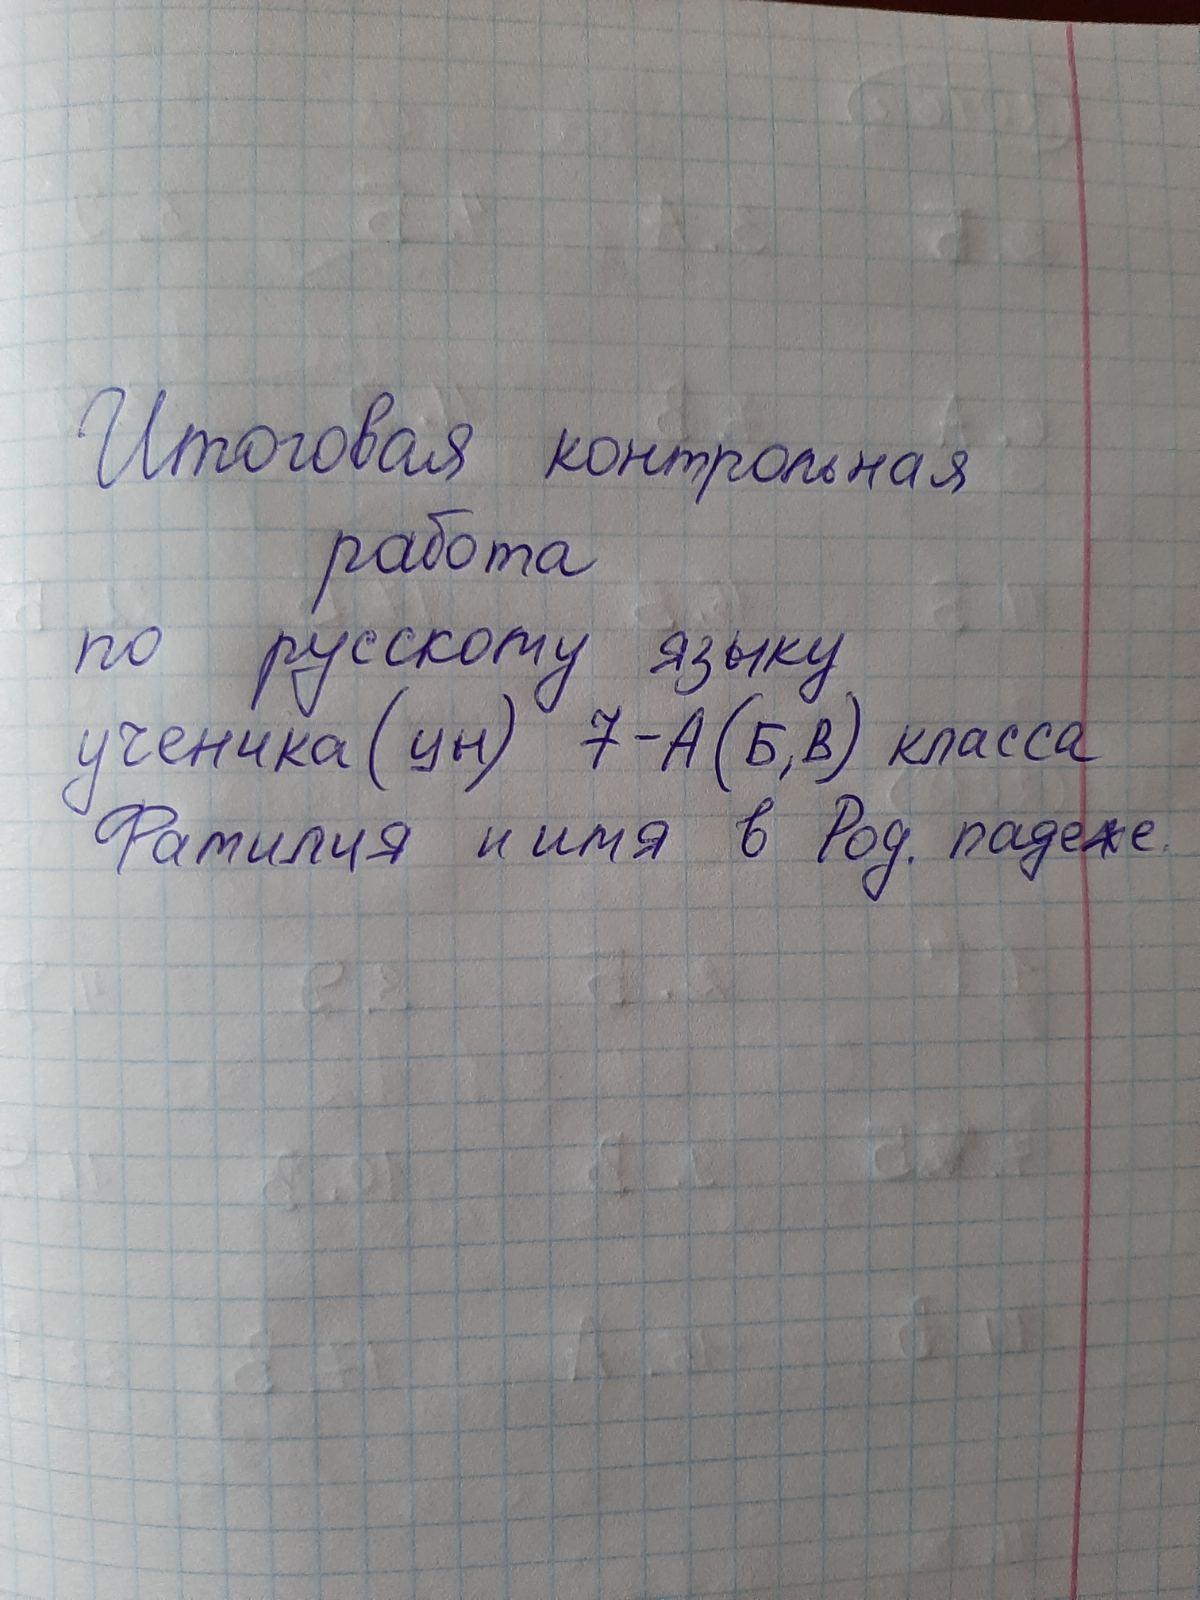 Итоговая контрольная
работа
по русскому языку
ученика (цы) 7-А (Б, В) класса
Фамилия и имя в Род. падеже.